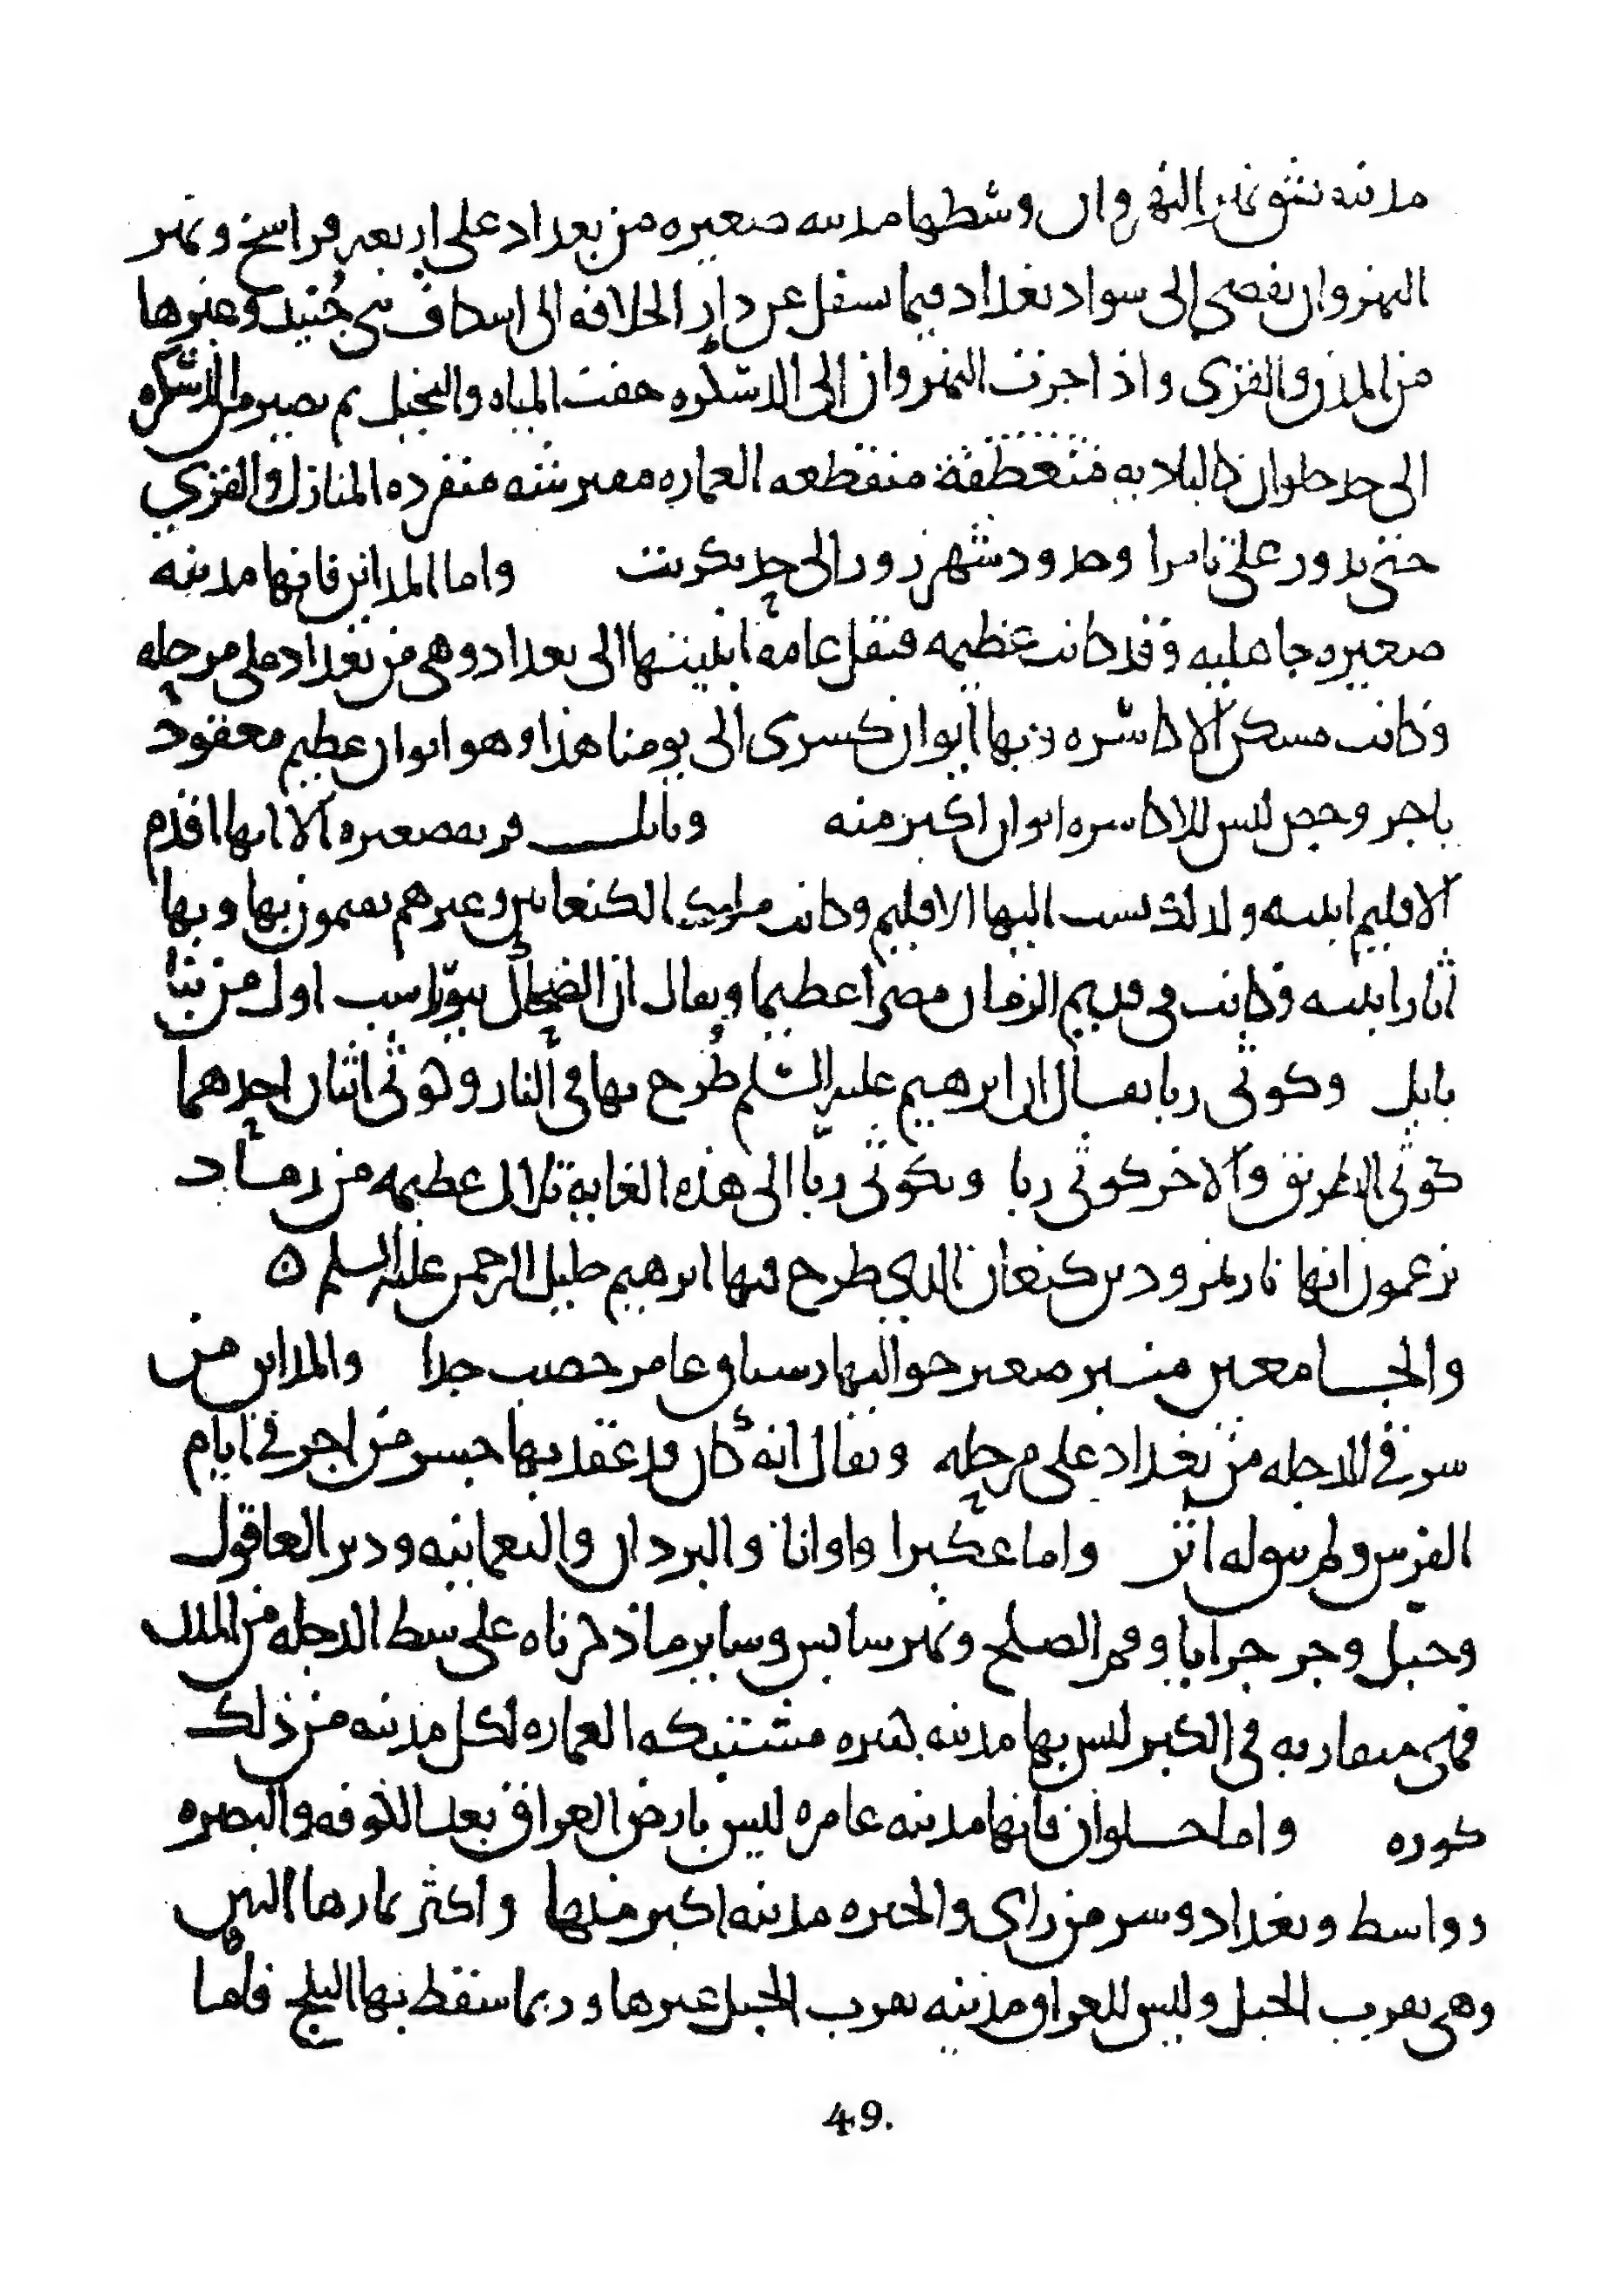 مدينه تشق نهر النهروان وسطها مدينه صغيره من بغداد على اربعه فراسخ ونهر
النهروان يفضي الى سواد بغداد فيما يسفل عن دار الخلافه الى اسكاف بني جنيد وغيرها
من المدن والقرى واذا جزت النهروان الى الدسكره خفت المياه والنخيل ثم يصير من الدسكره
الى حد حلوان كالباديه منقطعه العماره مفترشه منفرده المنازل والقرى
حتى يدور على تامرا وحدود شهرزور الى حد تكريت واما المداين فانها مدينه
صغيره جاهليه وقد كانت عظيمه فنقل عامه ابنيتها الى بغداد وهي من بغداد على مرحله
وكانت مسكن الاكاسره وبها ايوان كسرى الى يومنا هذا وهو ايوان عظيم معقود
باجر وجص ليس للاكاسره ايوان اكبر منه وبابل قريه صغيره الا انها اقدم
الاقليم ابنيه ولذلك نسب اليها الاقليم وكانت ملوك الكنعانيين وغيرهم يقيمون بها وبها
اثار ابنيه وكانت في قديم الزمان مصرا عظيما ويقال ان الضحاك بيوراسب اول من بنا
بابل وكوثى ربا يقال ان ابرهيم عليه السلم طرح بها في النار وكوثى اثنان احدهما
كوثى الطريق والاخر كوثى ربا وبكوثى ربا الى هذه الغاية تلال عظيمه من رماد
يزعمون انها نار نمرود بن كنعان الذي طرح فيها ابرهيم خليل الرحمن عليه السلم ه
والجامعين منبر صغير حواليها رستاق عامر خصب جدا والمداين من
شرقي الدجله من بغداد على مرحله ويقال انه كان قد عقد بها جسر من اجر في ايام
الفرس ولم نر له اثر واما عكبرا واوانا والبردان والنعمانيه ودير العاقول
وجبل وجرجرايا وفم الصلح ونهر سابس وساير ما ذكرناه على شط الدجله من المدن
فهي متقاربه في الكبر ليس بها مدينه كبيره مشتبكه العماره لكل مدينه من ذلك
كوره واما حلوان فانها مدينه عامره ليس بارض العراق بعد الكوفه والبصره
وواسط وبغداد وسر من راى والحيره مدينه اكبر منها واكثر ثمارها التين
وهي بقرب الجبل وليس للعراق مدينه بقرب الجبل غيرها وربما سقط بها الثلج فاما
49.